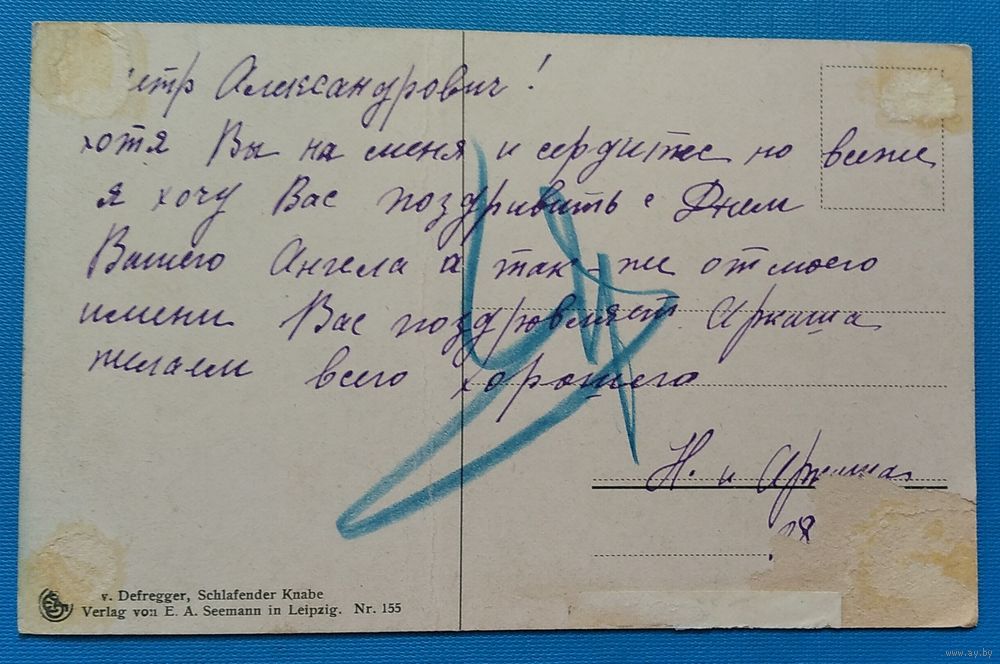 етр Александрович!
хотя Вы на меня и сердитесь но все же
я хочу Вас поздривить с Днем
Вашего Ангела а так-же от моего
имени Вас поздровляет Аркаша
желаем всего хорошего
Н. и Аркаша
v. Defregger, Schlafender Knabe
Verlag von E. A. Seemann in Leipzig. Nr. 155
www.ay.by